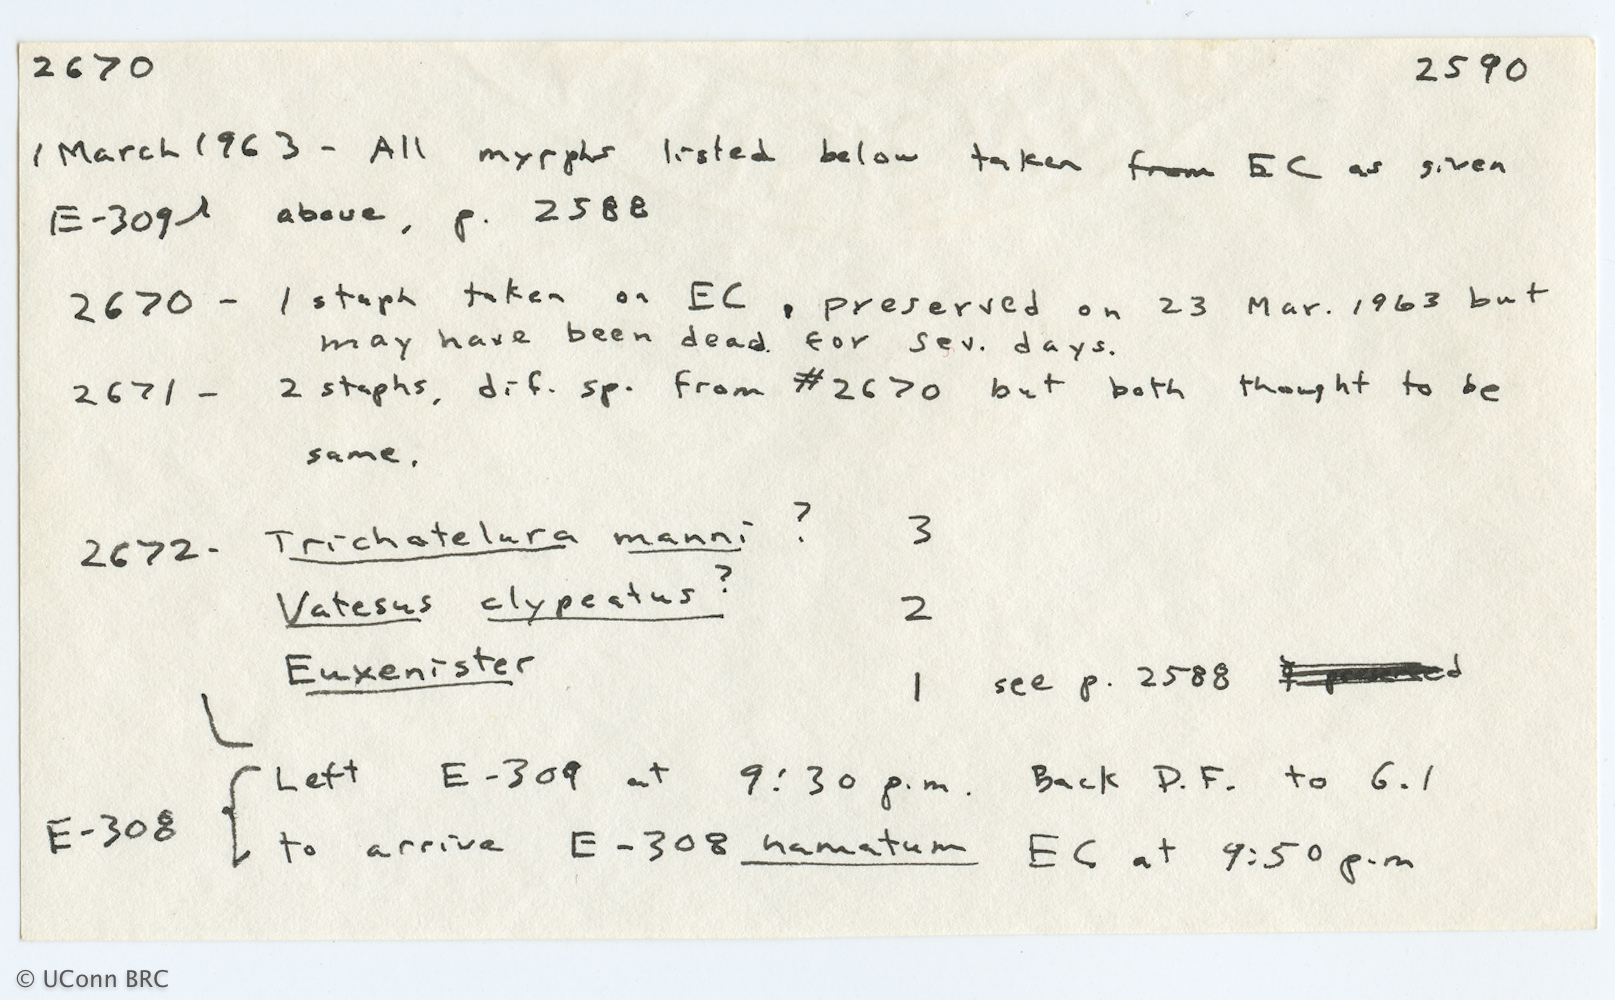 2670 2590
1 March 1963 - All myrphs listed below taken from EC as given
E-309 above, p. 2588
2670 - 1 staph taken on EC, preserved on 23 Mar. 1963 but
may have been dead for sev. days.
2671 - 2 staphs, dif. sp. from #2670 but both thought to be
same.
2672 - Trichatelura manni ? 3
Vatesus clypeatus ? 2
Euxenister 1 see p. 2588
Left E-309 at 9:30 p.m. Back D.F. to 6.1
E-308 to arrive E-308 hamatum EC at 9:50 p.m
© UConn BRC